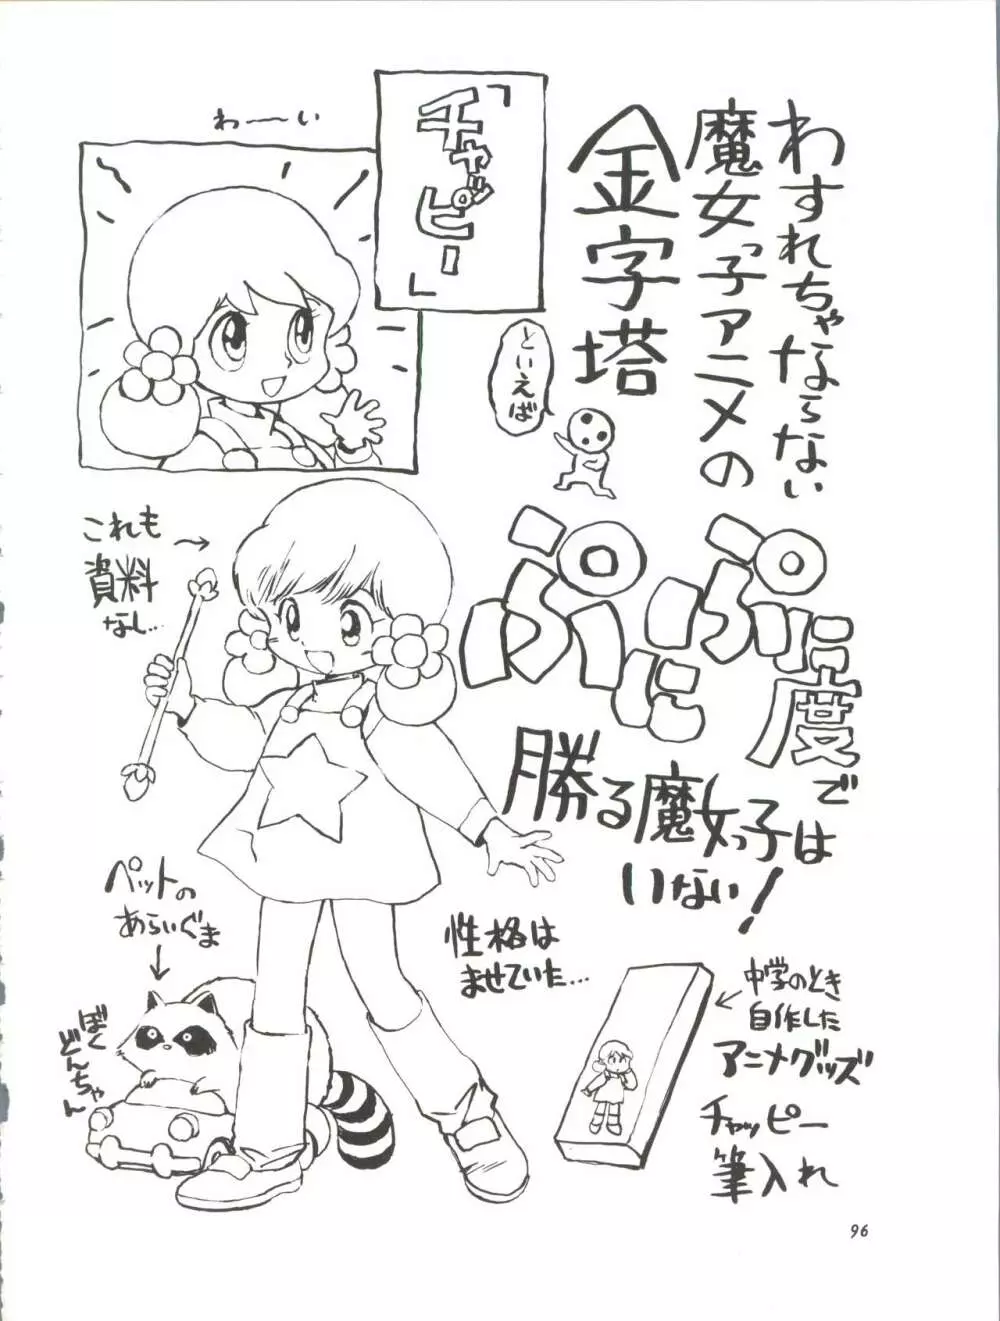 わすれちゃならない
魔女っ子アニメの
金字塔
といえば
「チャッピー」
わーい
ぷにぷに度では
勝る魔女っ子
いない!
これも
資料
なし…
ペットの
あらいぐま
ぼく
どんちゃん
性格は
ませていた…
中学のとき
自作した
アニメグッズ
チャッピー
筆入れ
96